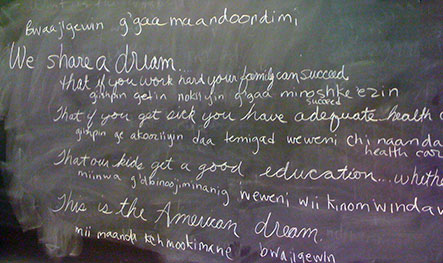 bwaajigewin g'gaa maandoordimi
We share a dream...
that if you work hard your family can succeed
giishpin getin nokiiyin g'gaa minoshke'ezin
succeed
That if you get sick you have adequate health
giishpin ge akooziiyin daa temigad weweni chi naanda
health car
That our kids get a good education... whethe
miinwa g'dbinoojiiminanig weweni wii kinomwindaw
This is the American dream.
mii maanda kchmookimane bwajigewin